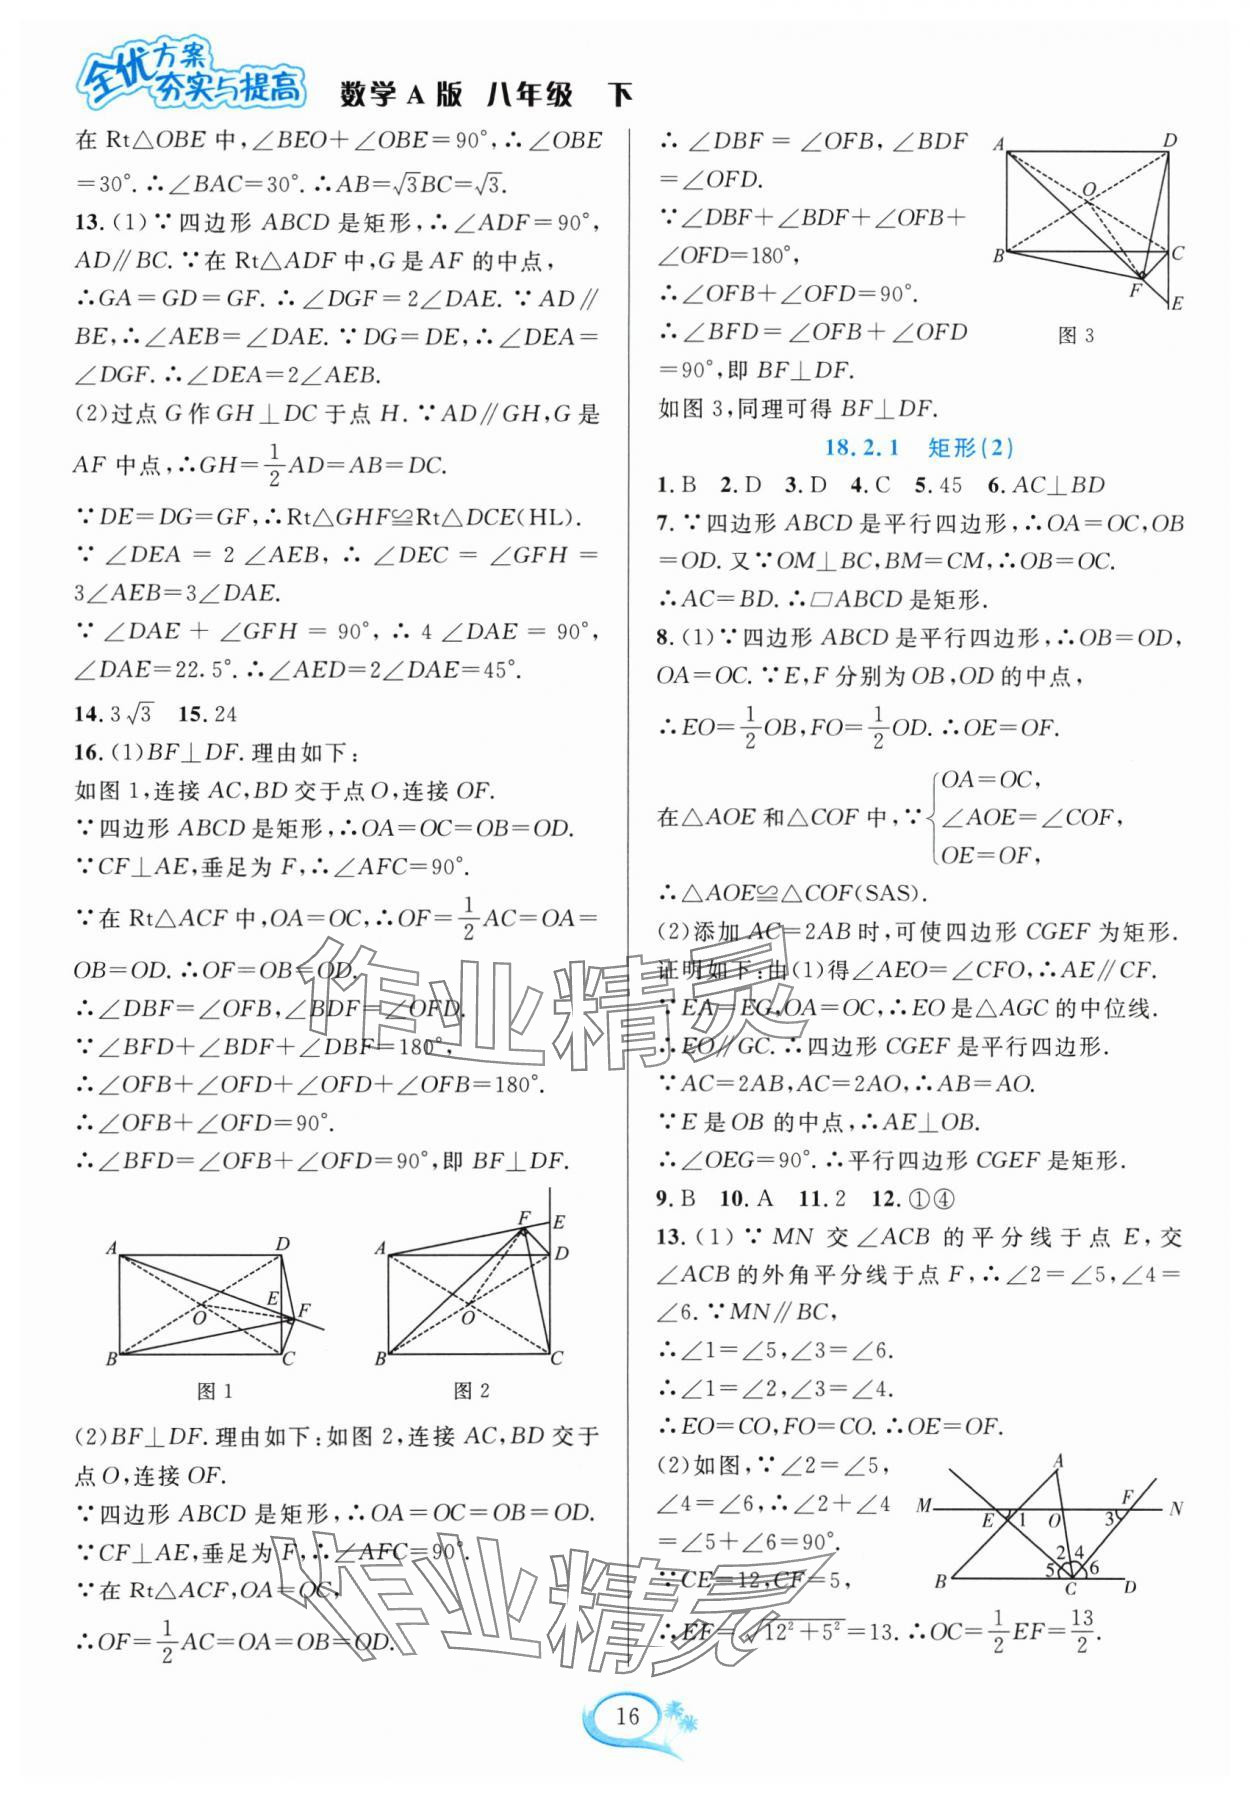 全优方案
夯实与提高
数学A版 八年级 下
在 Rt△OBE 中,∠BEO+∠OBE=90°,∴∠OBE
=30°.∴∠BAC=30°.∴AB=√3BC=√3.
13.(1)∵四边形 ABCD 是矩形,∴∠ADF=90°,
AD∥BC.∵在 Rt△ADF 中,G 是 AF 的中点,
∴GA=GD=GF.∴∠DGF=2∠DAE.∵AD∥
BE,∴∠AEB=∠DAE.∵DG=DE,∴∠DEA=
∠DGF.∴∠DEA=2∠AEB.
(2)过点 G 作 GH⊥DC 于点 H.∵AD∥GH,G 是
AF 中点,∴GH=1/2AD=AB=DC.
∵DE=DG=GF,∴Rt△GHF≌Rt△DCE(HL).
∵∠DEA=2∠AEB,∴∠DEC=∠GFH=
3∠AEB=3∠DAE.
∵∠DAE+∠GFH=90°,∴4∠DAE=90°,
∠DAE=22.5°.∴∠AED=2∠DAE=45°.
14.3√3 15.24
16.(1)BF⊥DF.理由如下:
如图 1,连接 AC,BD 交于点 O,连接 OF.
∵四边形 ABCD 是矩形,∴OA=OC=OB=OD.
∵CF⊥AE,垂足为 F,∴∠AFC=90°.
∵在 Rt△ACF 中,OA=OC,∴OF=1/2AC=OA=
OB=OD.∴OF=OB=OD.
∴∠DBF=∠OFB,∠BDF=∠OFD.
∵∠BFD+∠BDF+∠DBF=180°,
∴∠OFB+∠OFD+∠OFD+∠OFB=180°.
∴∠OFB+∠OFD=90°.
∴∠BFD=∠OFB+∠OFD=90°,即 BF⊥DF.
A D E F O B C
图 1
F E A D O B C
图 2
(2)BF⊥DF.理由如下:如图 2,连接 AC,BD 交于
点 O,连接 OF.
∵四边形 ABCD 是矩形,∴OA=OC=OB=OD.
∵CF⊥AE,垂足为 F,∴∠AFC=90°.
∵在 Rt△ACF,OA=OC,
∴OF=1/2AC=OA=OB=OD.
∴∠DBF=∠OFB,∠BDF
=∠OFD.
∵∠DBF+∠BDF+∠OFB+
∠OFD=180°,
∴∠OFB+∠OFD=90°.
∴∠BFD=∠OFB+∠OFD
=90°,即 BF⊥DF.
A D O B C F E
图 3
如图 3,同理可得 BF⊥DF.
18.2.1 矩形(2)
1.B 2.D 3.D 4.C 5.45 6.AC⊥BD
7.∵四边形 ABCD 是平行四边形,∴OA=OC,OB
=OD.又∵OM⊥BC,BM=CM,∴OB=OC.
∴AC=BD.∴▱ABCD 是矩形.
8.(1)∵四边形 ABCD 是平行四边形,∴OB=OD,
OA=OC.∵E,F 分别为 OB,OD 的中点,
∴EO=1/2OB,FO=1/2OD.∴OE=OF.
在△AOE 和△COF 中,∵{OA=OC,
∠AOE=∠COF,
OE=OF,
∴△AOE≌△COF(SAS).
(2)添加 AC=2AB 时,可使四边形 CGEF 为矩形.
证明如下:由(1)得∠AEO=∠CFO,∴AE∥CF.
∵EA=EG,OA=OC,∴EO 是△AGC 的中位线.
∴EO∥GC.∴四边形 CGEF 是平行四边形.
∵AC=2AB,AC=2AO,∴AB=AO.
∵E 是 OB 的中点,∴AE⊥OB.
∴∠OEG=90°.∴平行四边形 CGEF 是矩形.
9.B 10.A 11.2 12.①④
13.(1)∵MN 交∠ACB 的平分线于点 E,交
∠ACB 的外角平分线于点 F,∴∠2=∠5,∠4=
∠6.∵MN∥BC,
∴∠1=∠5,∠3=∠6.
∴∠1=∠2,∠3=∠4.
∴EO=CO,FO=CO.∴OE=OF.
(2)如图,∵∠2=∠5,
∠4=∠6,∴∠2+∠4
=∠5+∠6=90°.
∵CE=12,CF=5,
A M E 1 O 3 F N 2 4 5 6 B C D
∴EF=√(12²+5²)=13.∴OC=1/2EF=13/2.
作业精灵
作业精灵
16